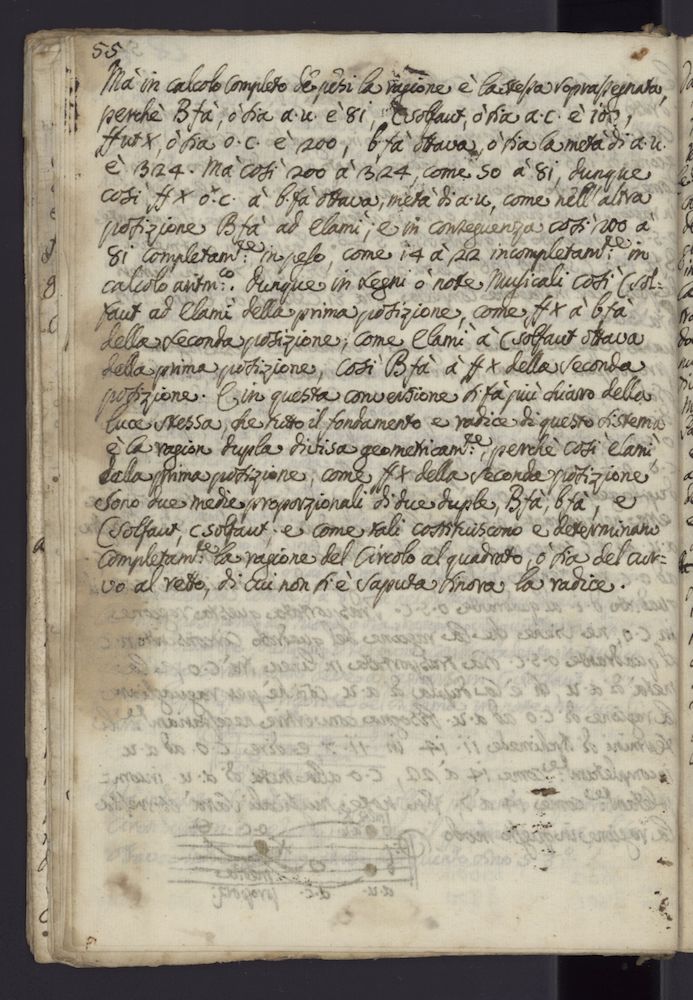 55
Mà in calcolo completo la ragione è la stessa soprassegnata,
perchè B fà, ò sia a.u. è 81, Csolfaut, ò sia a.c. è
ffut X, ò sia o.c. è 200, b fà ottava, ò sia la metà di a.u.
è 324. Mà così 200 à 324, come 50 à 81, dunque
così ff X o.c. à b.fà ottava, metà di a.u, come nell'altra
posizione B fà ad Elamì; e in conseguenza così 200 à
81 completam.te in peso, come 14 à 22 incompletam.te in
calcolo aritm.co. Dunque in segni ò note Musicali così Csol=
faut ad Elamì della prima posizione, come ff X à b fà
della seconda posizione; come Elamì à Csolfaut ottava
della prima posizione, così B fà à ff X della seconda
posizione. E in questa conversione si fà più chiaro della
luce stessa, che tutto il fondamento e radice di questo sistema
è la ragion dupla divisa geometricam.te, perchè così Elamì
dalla prima posizione, come ff X della seconda posizione
sono due medie proporzionali di due duple, B fà, b fà, e
Csolfaut, c solfaut. e come tali costituiscono e determinano
completam.te la ragione del Circolo al quadrato, ò sia del cur=
vo al retto, di cui non si è saputa sinora la radice.